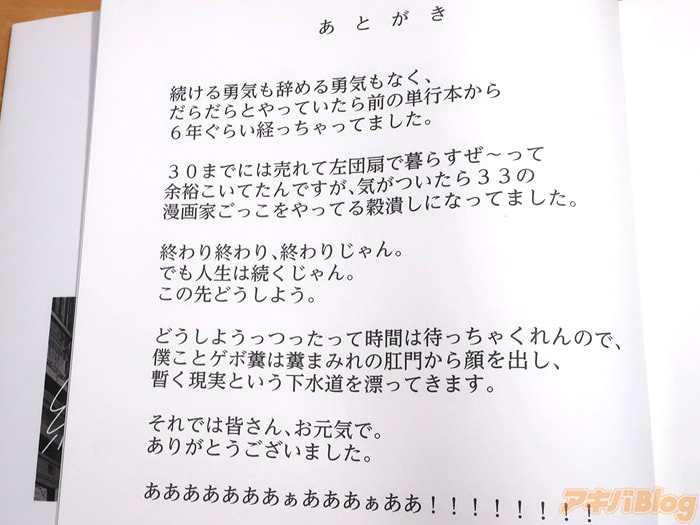 あとがき
続ける勇気も辞める勇気もなく、
だらだらとやっていたら前の単行本から
６年ぐらい経っちゃってました。
３０までには売れて左団扇で暮らすぜ～って
余裕こいてたんですが、気がついたら３３の
漫画家ごっこをやってる穀潰しになってました。
終わり終わり、終わりじゃん。
でも人生は続くじゃん。
この先どうしよう。
どうしようっつったって時間は待っちゃくれんので、
僕ことゲボ糞は糞まみれの肛門から顔を出し、
暫く現実という下水道を漂ってきます。
それでは皆さん、お元気で。
ありがとうございました。
あああああああぁあああぁああ！！！！！！！！
アキバBlog